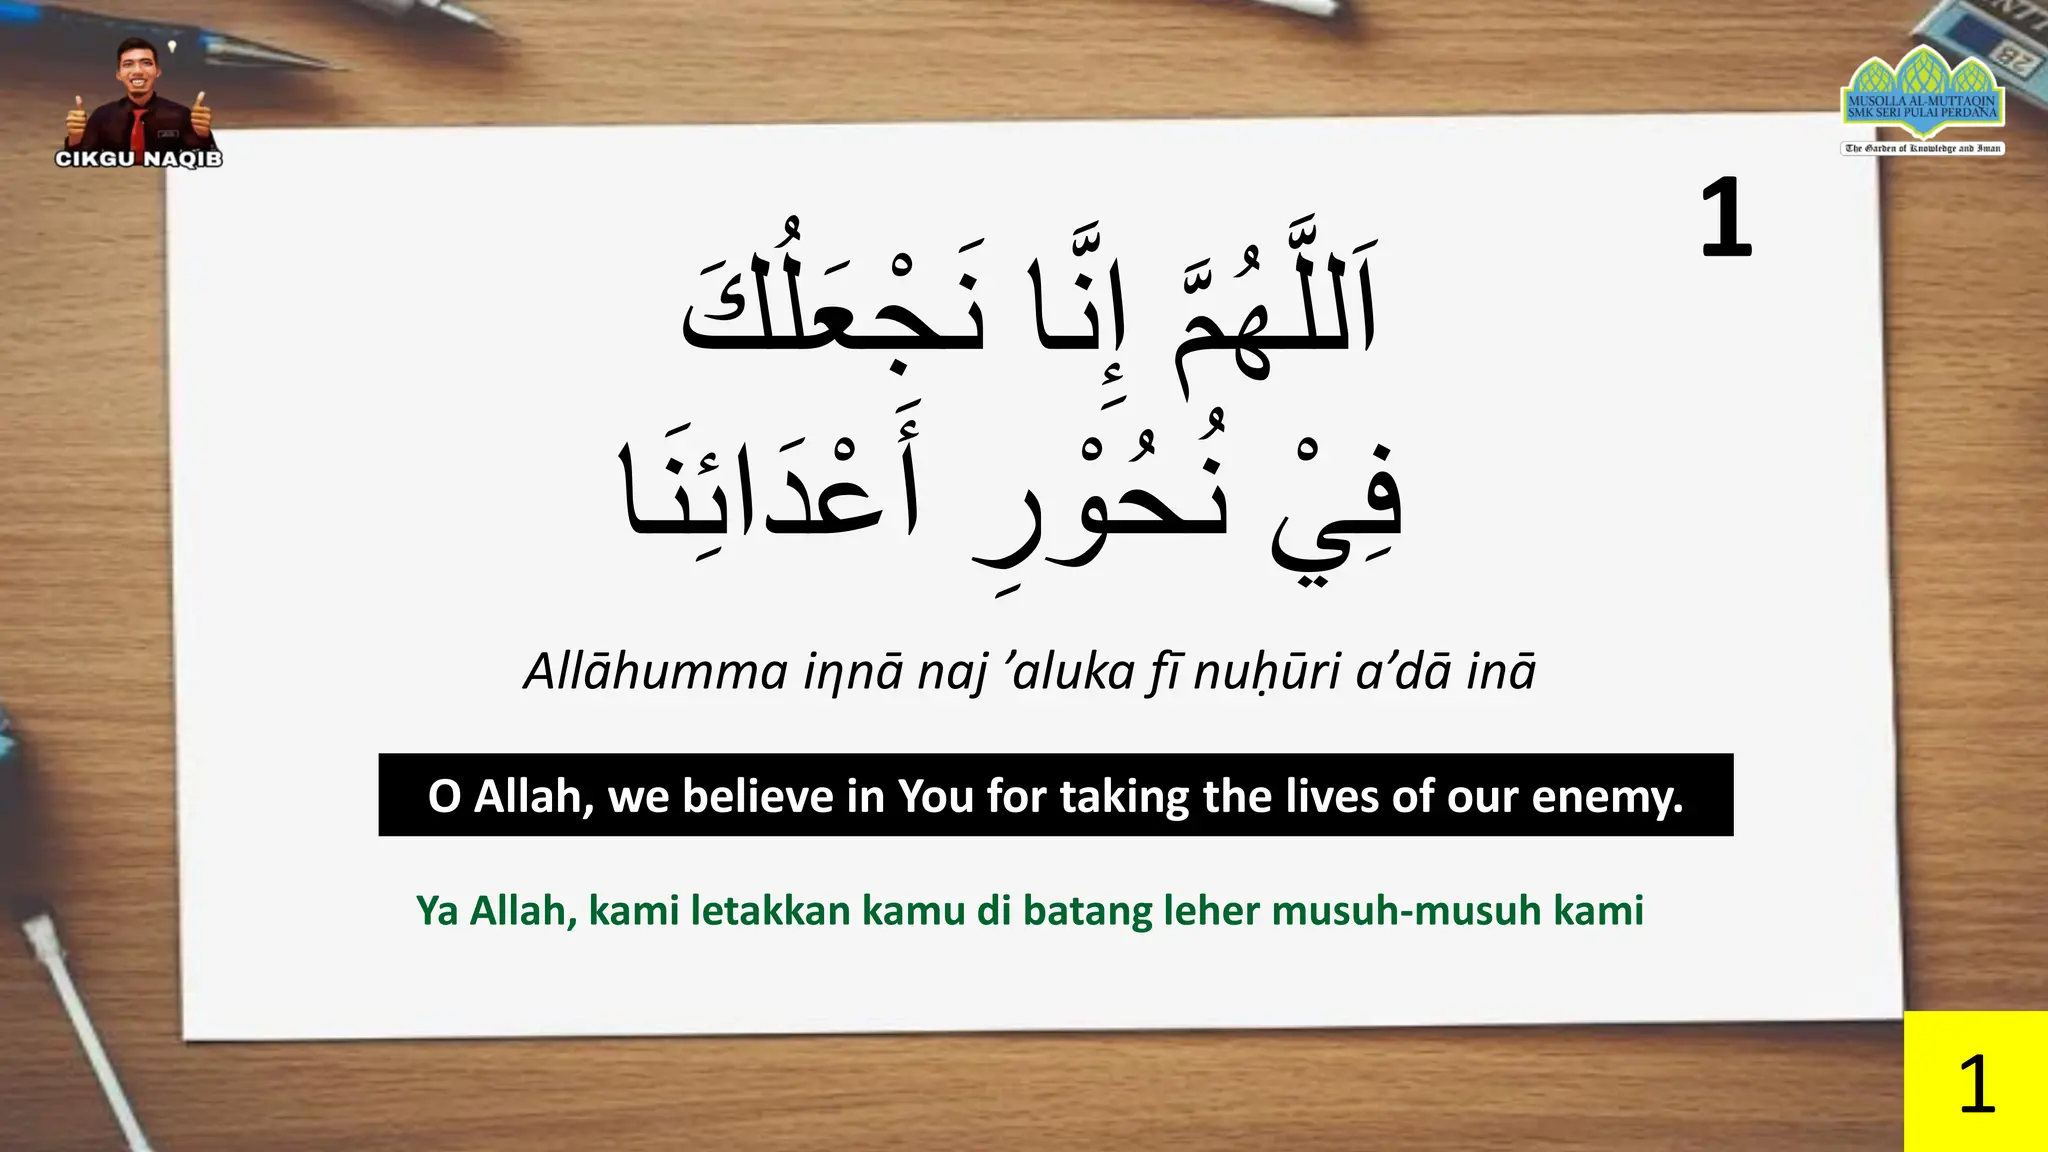 CIKGU NAQIB
MUSOLLA AL-MUTTAQIN
SMK SERI PULAI PERDANA
The Garden of Knowledge and Iman
1
اَللَّهُمَّ إِنَّا نَجْعَلُكَ
فِيْ نُحُوْرِ أَعْدَائِنَا
Allāhumma iηnā naj ’aluka fī nuḥūri a’dā inā
O Allah, we believe in You for taking the lives of our enemy.
Ya Allah, kami letakkan kamu di batang leher musuh-musuh kami
1